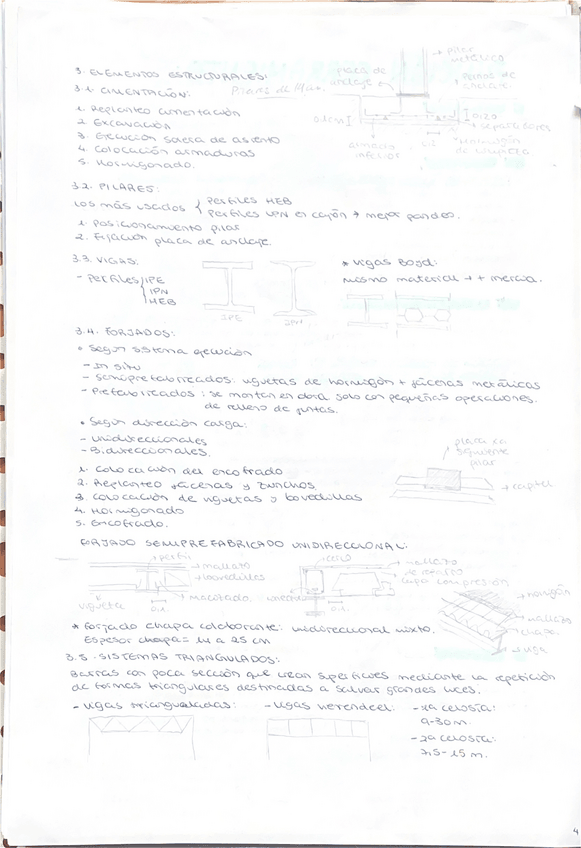 3. ELEMENTOS ESTRUCTURALES:
3.1. CIMENTACIÓN:
1. Replanteo cimentación
2. Excavación
3. Ejecución solera de asiento
4. Colocación armaduras
5. Hormigonado.
pilar metálico
placa de anclaje
Pernos de anclaje
separadores
Hormigón de limpieza
armado inferior
3.2. PILARES:
Los más usados { Perfiles HEB
Perfiles UPN en cajón → mejor pandeo.
1. Posicionamiento pilar
2. Fijación placa de anclaje.
3.3. VIGAS:
- Perfiles IPE
IPN
HEB
IPE
IPN
* Vigas Boyd:
mismo material → + inercia.
3.4. FORJADOS:
• Según sistema ejecución
- In situ
- Semiprefabricados: viguetas de hormigón + jáceras metálicas
- Prefabricados: se montan en obra solo con pequeñas operaciones.
de relleno de juntas.
• Según dirección carga:
- Unidireccionales
- Bidireccionales.
1. Colocación del encofrado
2. Replanteo jáceras y zunchos
3. Colocación de viguetas y bovedillas
4. Hormigonado
5. Encofrado.
siguiente pilar
→ capitel
FORJADO SEMIPREFABRICADO UNIDIRECCIONAL:
→ perfil
→ mallazo
→ bovedillas
→ macizado.
vigueta
→ mallazo de reparto
capa compresión
→ hormigón
→ mallazo
→ chapa.
→ viga
* Forjado chapa colaborante: unidireccional mixto.
Espesor chapa = 14 a 25 cm
3.5. SISTEMAS TRIANGULADOS:
Barras con poca sección que crean superficies mediante la repetición
de formas triangulares destinadas a salvar grandes luces.
- Vigas trianguladas:
- Vigas Vierendeel:
- 1ª celosía:
9-30m.
- 2ª celosía:
7,5-15 m.
4